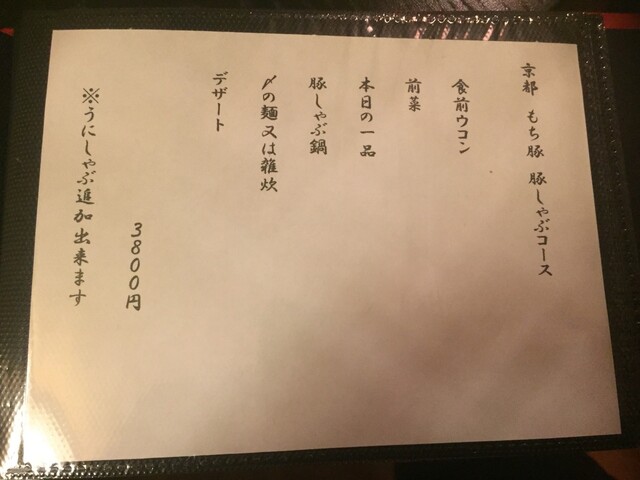 京都 もち豚 豚しゃぶコース
食前ウコン
前菜
本日の一品
豚しゃぶ鍋
〆の麺又は雑炊
デザート
3800円
※うにしゃぶ追加出来ます